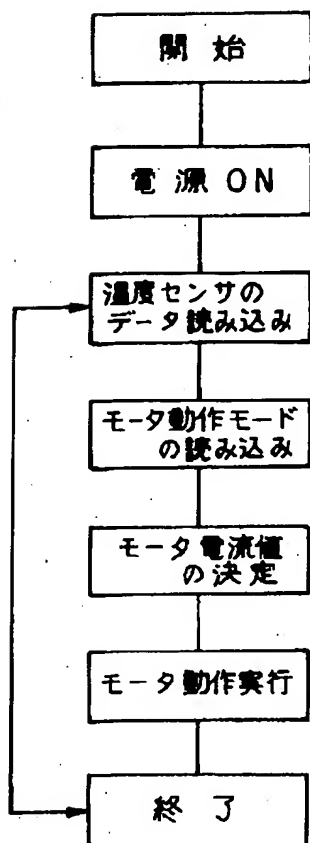 開始
電源ON
温度センサの
データ読み込み
モータ動作モード
の読み込み
モータ電流値
の決定
モータ動作実行
終了